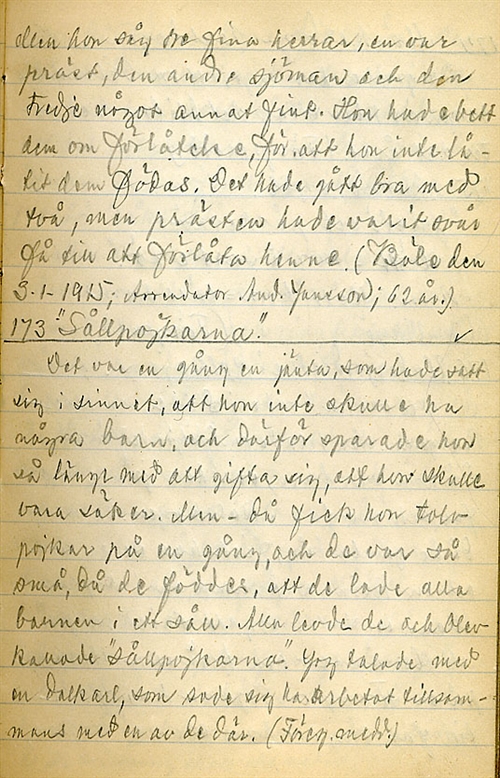 Men hon såg tre fina herrar, en var
präst, den andre sjöman och den
tredje något annat fint. Hon hade bett
dem om förlåtelse, för att hon inte lå-
tit dem födas. Det hade gått bra med
två, men prästen hade varit svår
få till att förlåta henne. (Böle den
3-1-1915; Arrendator And. Jansson; 62 år.)
173 "Sållpojkarna".
Det var en gång en jänta, som hade satt
sig i sinnet, att hon inte skulle ha
några barn, och därför sparade hon
så långt med att gifta sig, att hon skulle
vara säker. Men - då fick hon tolv
pojkar på en gång, och de var så
små, då de föddes, att de lade alla
barnen i ett såll. Alla levde de och blev
kallade "sållpojkarna". Jag talade med
en dalkarl, som sade sig ha arbetat tillsam-
mans med en av de där. (Föreg. medd.)